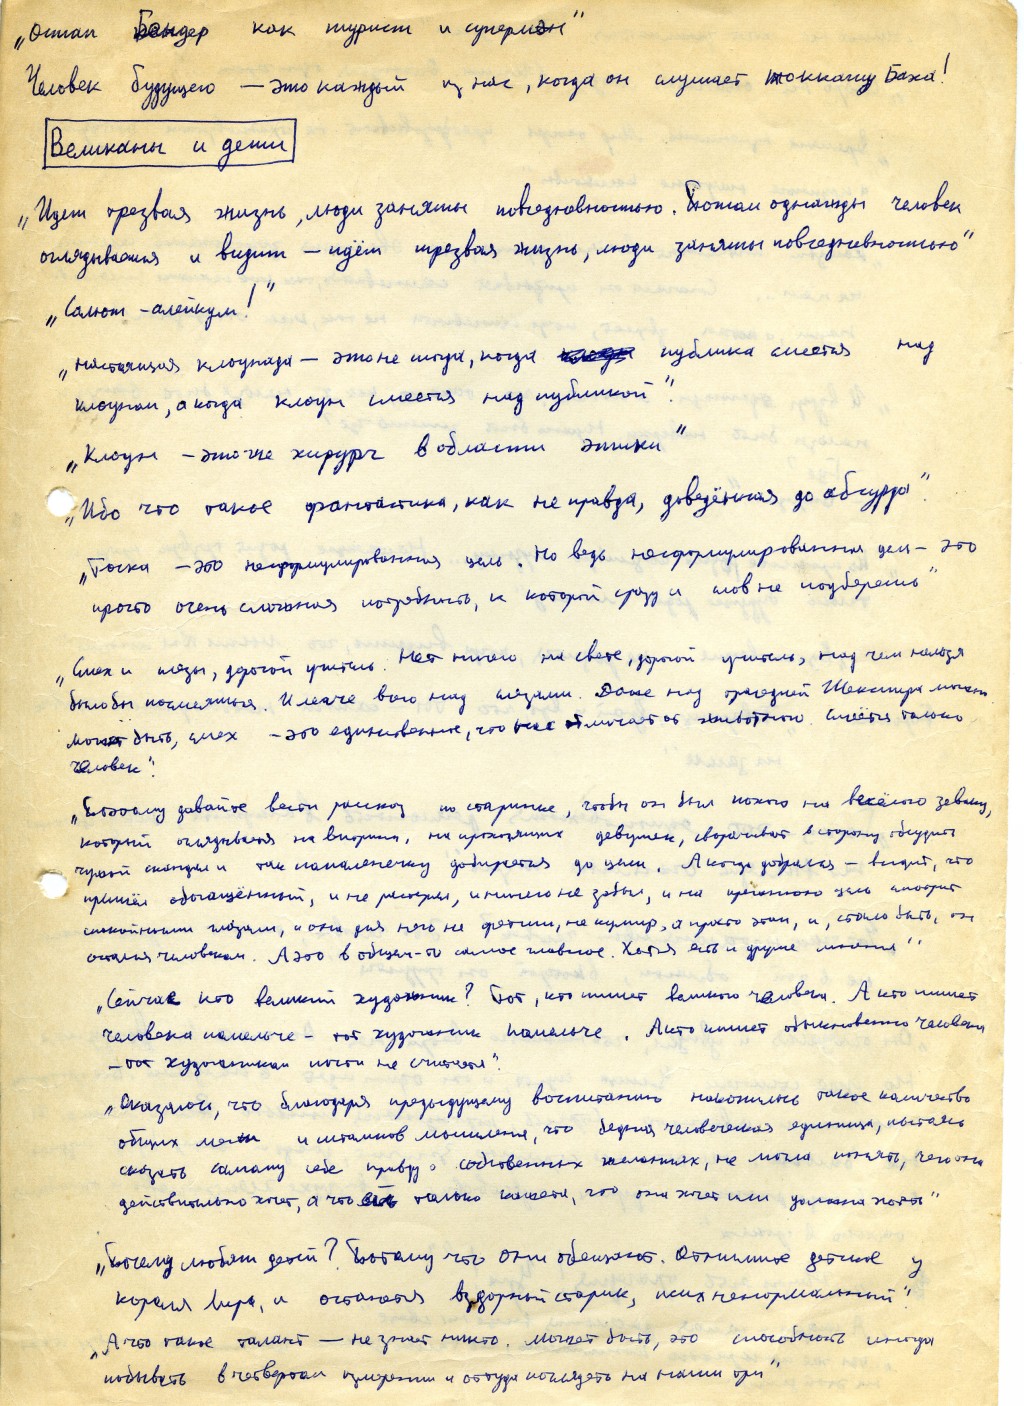 „Остап Бендер как турист и супермэн“
Человек будущего — это каждый из нас, когда он слушает токкату Баха!
Великаны и дети
„Идет трезвая жизнь, люди заняты повседневностью. Потом однажды человек
оглядывается и видит — идёт трезвая жизнь, люди заняты повседневностью“
„Салют-алейкум!“
„настоящая клоунада — это не тогда, когда публика смеется над
клоуном, а когда клоун смеется над публикой“.
„Клоун — это же хирург в области этики“
„Ибо что такое фантастика, как не правда, доведённая до абсурда“.
„Тоска — это несформулированная цель. Но ведь несформулированная цель — это
просто очень сложная потребность, к которой сразу и слов не подберешь“
„Смех и слезы, дорогой учитель. Нет ничего на свете, дорогой учитель, над чем нельзя
было бы посмеяться. И легче всего над слезами. Даже над трагедией Шекспира можно
может быть, смех — это единственное, что нас отличает от животного. Смеётся только
человек“.
„Поэтому давайте вести рассказ по старинке, чтобы он был похож на весёлого зеваку,
который оглядывается на витрины, на проходящих девушек, сворачивает в сторону обсудить
чужой скандал и так помаленечку добирается до цели. А когда добрался — видит, что
пришёл обогащённый, и не растерял, и ничего не забыл, и на цель смотрит
спокойными глазами, и она для него не фетиш, не кумир, а просто этап, и, стало быть, он
остался человеком. А это в общем-то самое главное. Хотя есть и другие мнения“
„Сейчас кто великий художник? Тот, кто пишет великого человека. А кто пишет
человека помельче — тот художник помельче. А кто пишет обыкновенного человека
— тот художником почти не считается“.
„Оказалось, что благодаря предыдущему воспитанию накопилось такое количество
общих мест и штампов мышления, что бедная человеческая единица, пытаясь
сказать самому себе правду о собственных желаниях, не могла понять, чего она
действительно хочет, а что ей только кажется, что она хочет или должна хотеть“
„Почему любят детей? Потому что они обещают. Отнимите детское у
короля Лира, и останется вздорный старик, психненормальный“.
„А что такое талант — не знает никто. Может быть, это способность иногда
побывать в четвертом измерении и оттуда поглядеть на наши три“